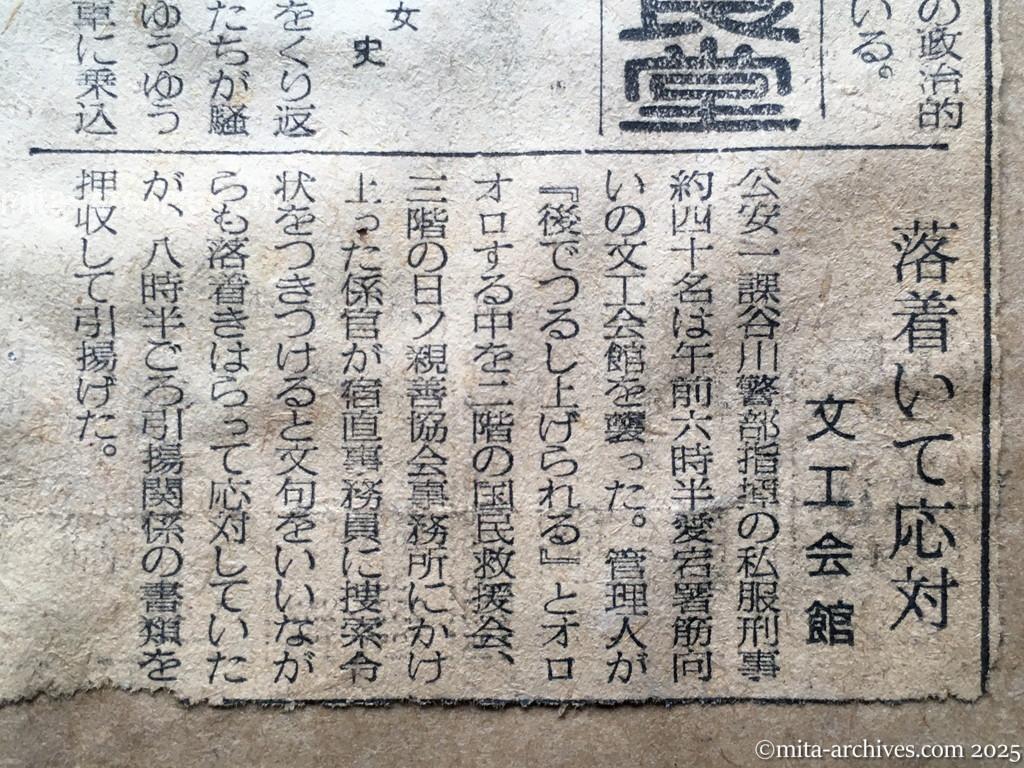 の政治的
いる。
堂
女史
をくり返
たちが騒
ゆうゆう
車に乗込
落着いて応対
文工会館
公安一課谷川警部指揮の私服刑事
約四十名は午前六時半愛宕署筋向
いの文工会館を襲った。管理人が
『後でつるし上げられる』とオロ
オロする中を二階の国民救援会、
三階の日ソ親善協会事務所にかけ
上った係官が宿直事務員に捜索令
状をつきつけると文句をいいなが
らも落着きはらって応対していた
が、八時半ごろ引揚関係の書類を
押収して引揚げた。
©mita-archives.com 2025